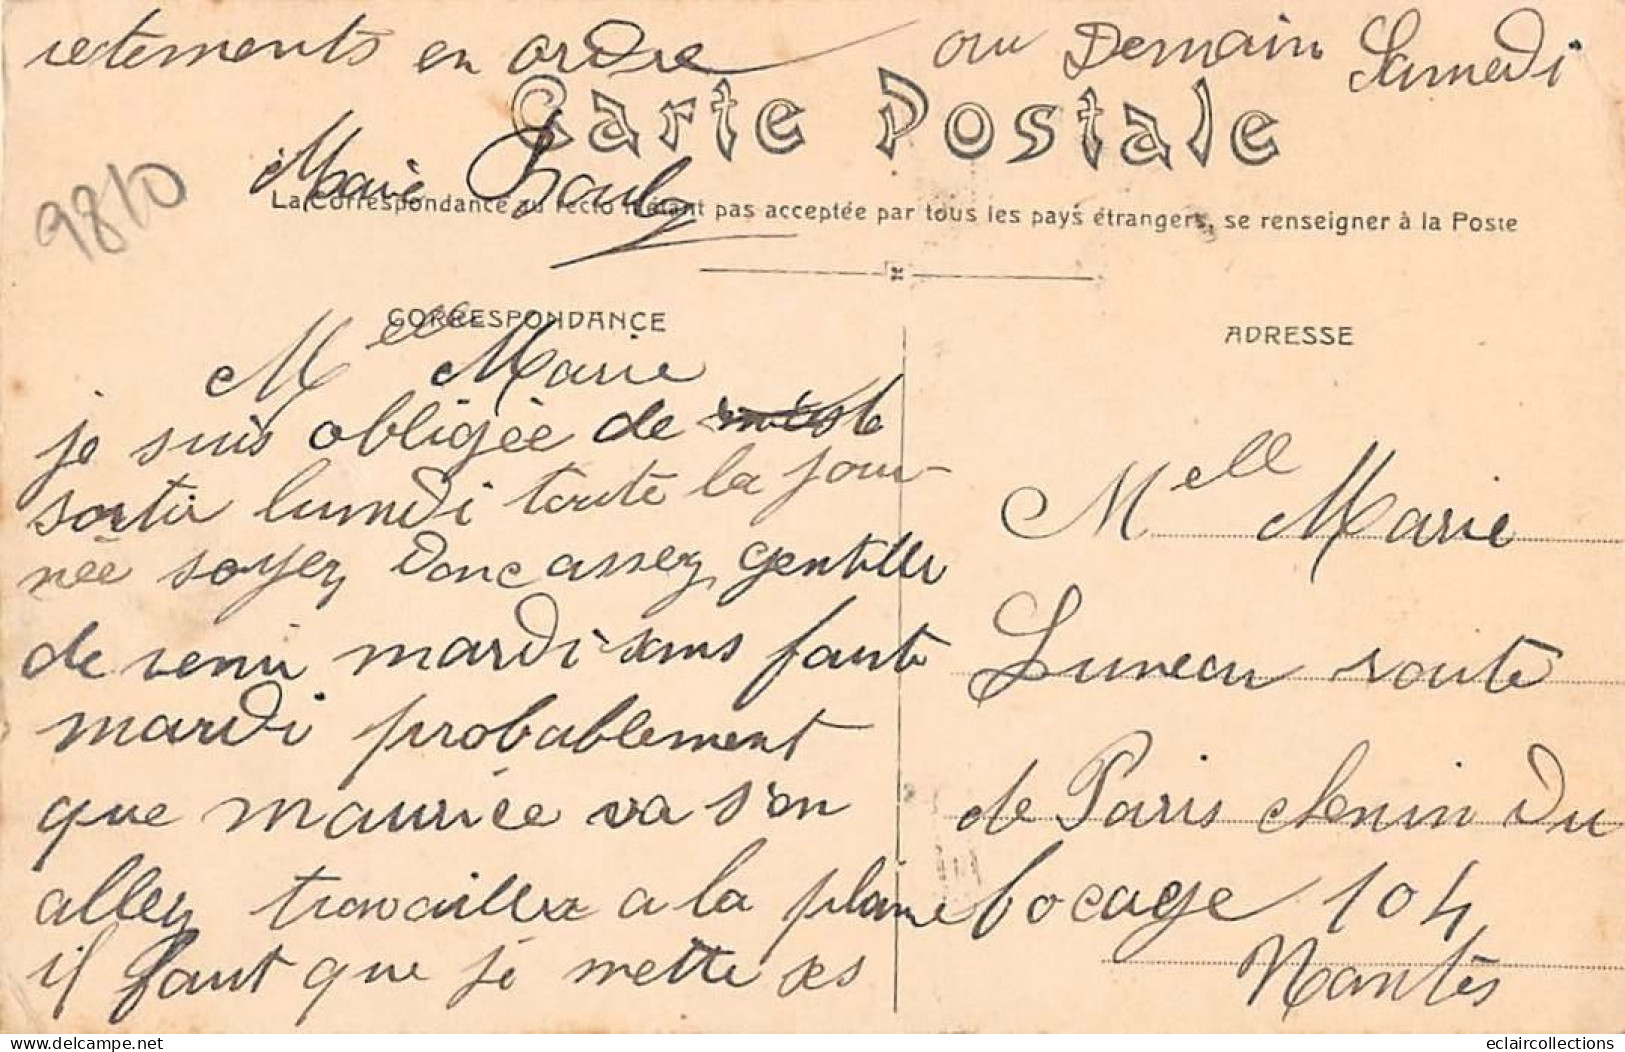 vetements en ordre ou Demain Samedi
Carte Postale
Marie
9810
La Correspondance au recto n'étant pas acceptée par tous les pays étrangers, se renseigner à la Poste
CORRESPONDANCE
Melle Marie
je suis obligée de
sortir lundi toute la jour
née soyez Donc assez gentille
de venir mardi sans faute
mardi probablement
que maurice va s'en
allez travailler a la plaine
il faut que je mette ses
ADRESSE
Melle Marie
Luneau route
de Paris chemin Du
bocage 104
Nantes
delcampe.net
eclaircollections